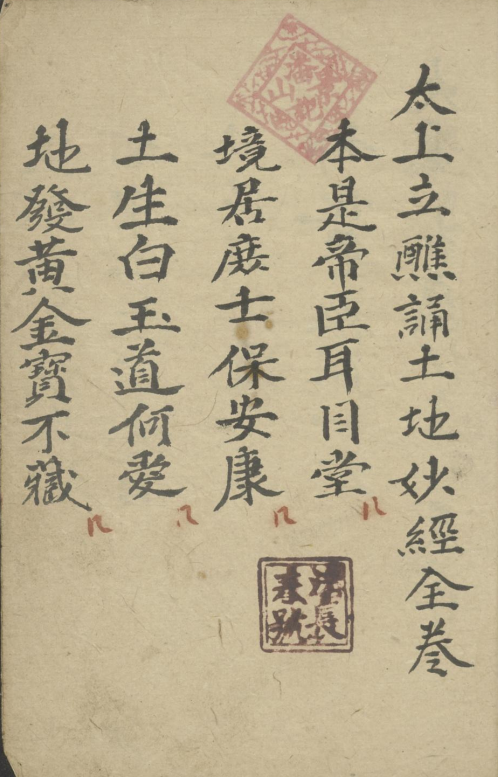 太上立醮誦土地妙經全卷
本是帝臣耳目堂
境居庶士保安康
土生白玉道何愛
地發黃金寶不藏
長
春號